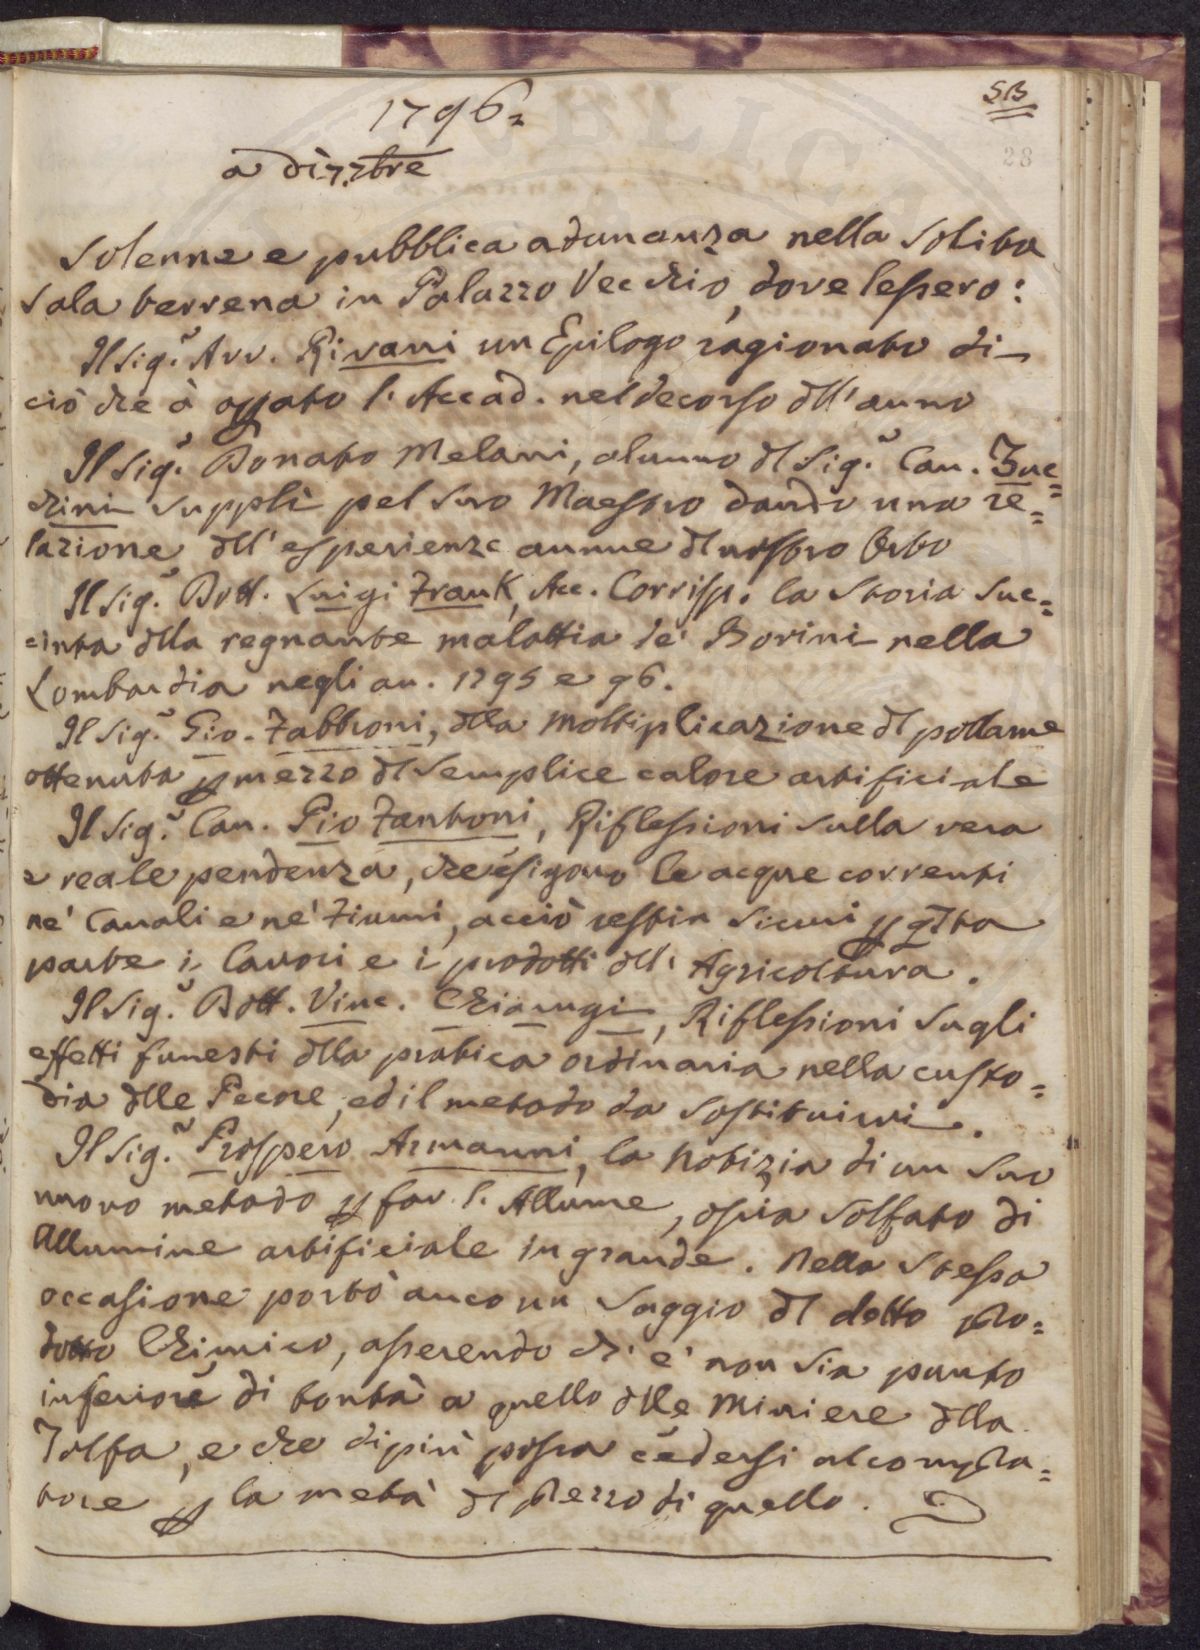 53
28
1796.
a dì 7. 7bre
Solenne e pubblica adunanza nella solita
sala terrena in Palazzo Vecchio, dove lessero:
Il Sig.r Avv. Rivani un Epilogo ragionato di
ciò che à oprato l'Accad. nel decorso dll'anno
Il Sig.r Donato Melani, alunno dl Sig.r Can. Zuc=
chini supplì pel suo Maestro dando una re=
lazione dll'esperienze annue dl nostro Orto
Il Sig.r Dott. Luigi Frank, Acc. Corrisp. la storia suc=
cinta dlla regnante malattia de' Bovini nella
Lombardia negli an. 1795 e 96.
Il Sig.r Gio. Fabbroni, dlla moltiplicazione dl pollame
ottenuta p mezzo dl semplice calore artificiale
Il Sig.r Can. Pio Fantoni, Riflessioni sulla vera
e reale pendenza, che esigono le acque correnti
ne' Canali e ne' Fiumi, acciò restin sicuri p qta
parte i lavori e i prodotti dll'Agricoltura.
Il Sig.r Dott. Vinc. Chiarugi, Riflessioni sugli
effetti funesti dlla pratica ordinaria nella custo=
dia dlle Pecore, ed il metodo da sostituirvi.
Il Sig.r Prospero Armanni, la notizia di un suo
nuovo metodo p far l'Allume, ossia solfato di
Allumine artificiale in grande. Nella stessa
occasione portò anco un saggio dl detto pro=
dotto Chimico, asserendo ch'e' non sia punto
inferiore di bontà a quello dlle Miniere dlla
Tolfa, e che di più possa cedersi al compra=
tore p la metà dl prezzo di quello.